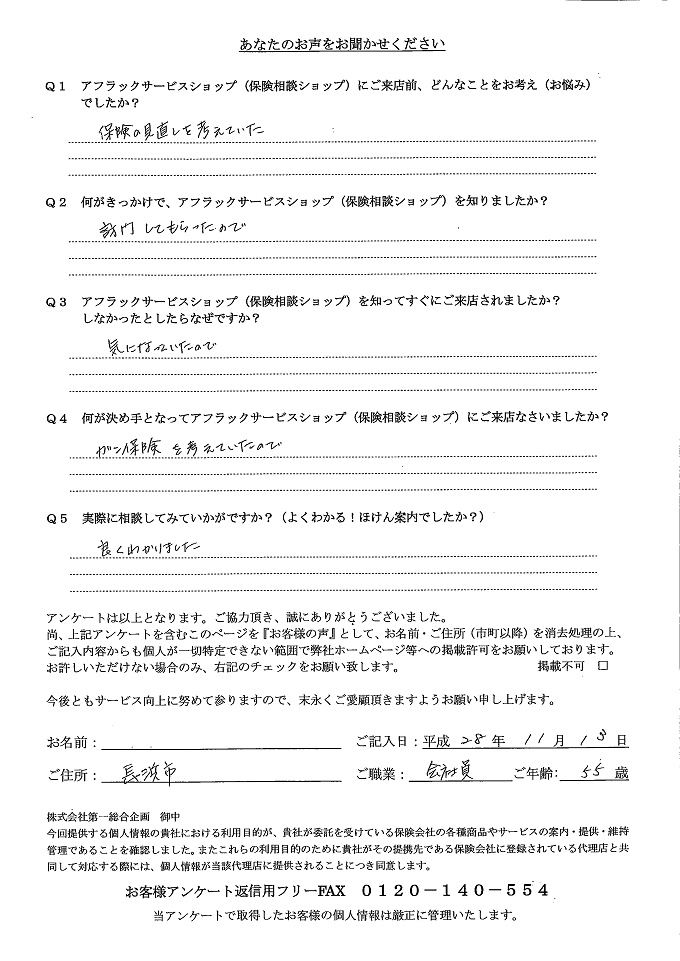 あなたのお声をお聞かせください
Q1 アフラックサービスショップ（保険相談ショップ）にご来店前、どんなことをお考え（お悩み）
でしたか？
保険の見直しを考えていた
Q2 何がきっかけで、アフラックサービスショップ（保険相談ショップ）を知りましたか？
訪門してもらったので
Q3 アフラックサービスショップ（保険相談ショップ）を知ってすぐにご来店されましたか？
しなかったとしたらなぜですか？
気になっていたので
Q4 何が決め手となってアフラックサービスショップ（保険相談ショップ）にご来店なさいましたか？
ガン保険を考えていたので
Q5 実際に相談してみていかがですか？（よくわかる！ほけん案内でしたか？）
良くわかりました
アンケートは以上となります。ご協力頂き、誠にありがとうございました。
尚、上記アンケートを含むこのページを『お客様の声』として、お名前・ご住所（市町以降）を消去処理の上、
ご記入内容からも個人が一切特定できない範囲で弊社ホームページ等への掲載許可をお願いしております。
お許しいただけない場合のみ、右記のチェックをお願い致します。 掲載不可 □
今後ともサービス向上に努めて参りますので、末永くご愛顧頂きますようお願い申し上げます。
お名前： ご記入日：平成 28 年 11 月 13 日
ご住所： 長浜市 ご職業： 会社員 ご年齢： 55 歳
株式会社第一総合企画 御中
今回提供する個人情報の貴社における利用目的が、貴社が委託を受けている保険会社の各種商品やサービスの案内・提供・維持
管理であることを確認しました。またこれらの利用目的のために貴社がその提携先である保険会社に登録されている代理店と共
同して対応する際には、個人情報が当該代理店に提供されることにつき同意します。
お客様アンケート返信用フリーFAX ０１２０－１４０－５５４
当アンケートで取得したお客様の個人情報は厳正に管理いたします。